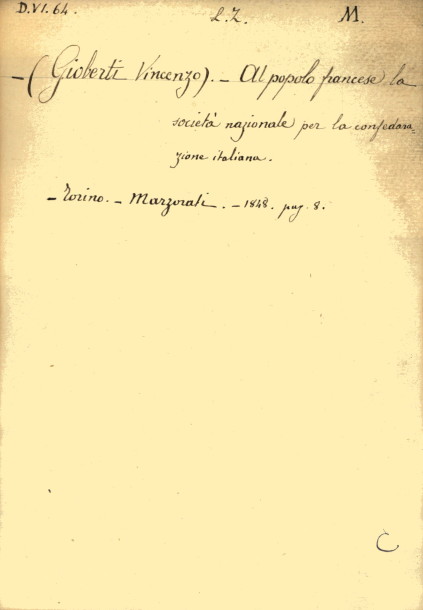 D.VI.64. L.Z. M.
– (Gioberti Vincenzo). – Al popolo francese la
società nazionale per la confedara-
zione italiana.
– Torino. – Marzorati. – 1848. pag. 8.
C